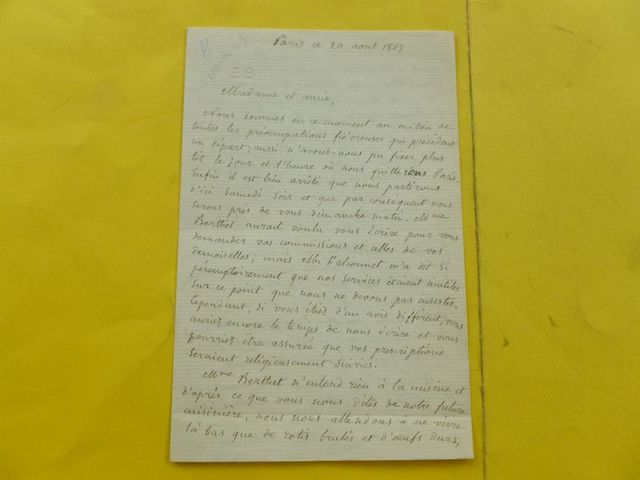 Paris ce 20 aout 1863
Madame et amie,
Nous sommes en ce moment au milieu de
toutes les préocupations fiévreuses qui précèdent
un départ; aussi n'avons-nous pu fixer plus
tôt le jour et l'heure où nous quitterions Paris.
Enfin il est bien arrêté que nous partirons
d'ici Samedi soir et que par consequent nous
serons près de vous dimanche matin. Mme
Berthet aurait voulu vous écrire pour vous
demander vos commissions et celles de vos
demoiselles, mais m'a dit si
péremptoirement que nos services étaient inutiles
sur ce point que nous ne devons pas insister.
Cependant, si vous étiez d'un avis différent, vous
auriez encore le temps de nous écrire et vous
pourriez etre assurée que vos prescriptions
seraient religieusement suivies.
Mme Berthet n'entend rien à la cuisine et
d'après ce que vous nous dites de notre future
cuisinière, nous nous attendons à ne vivre
là bas que de rotis brulés et d'oeufs durs;